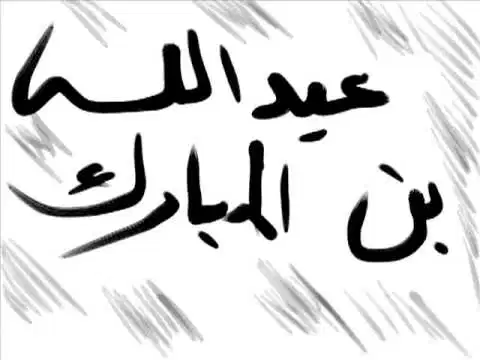 عبدالله
بن المبارك